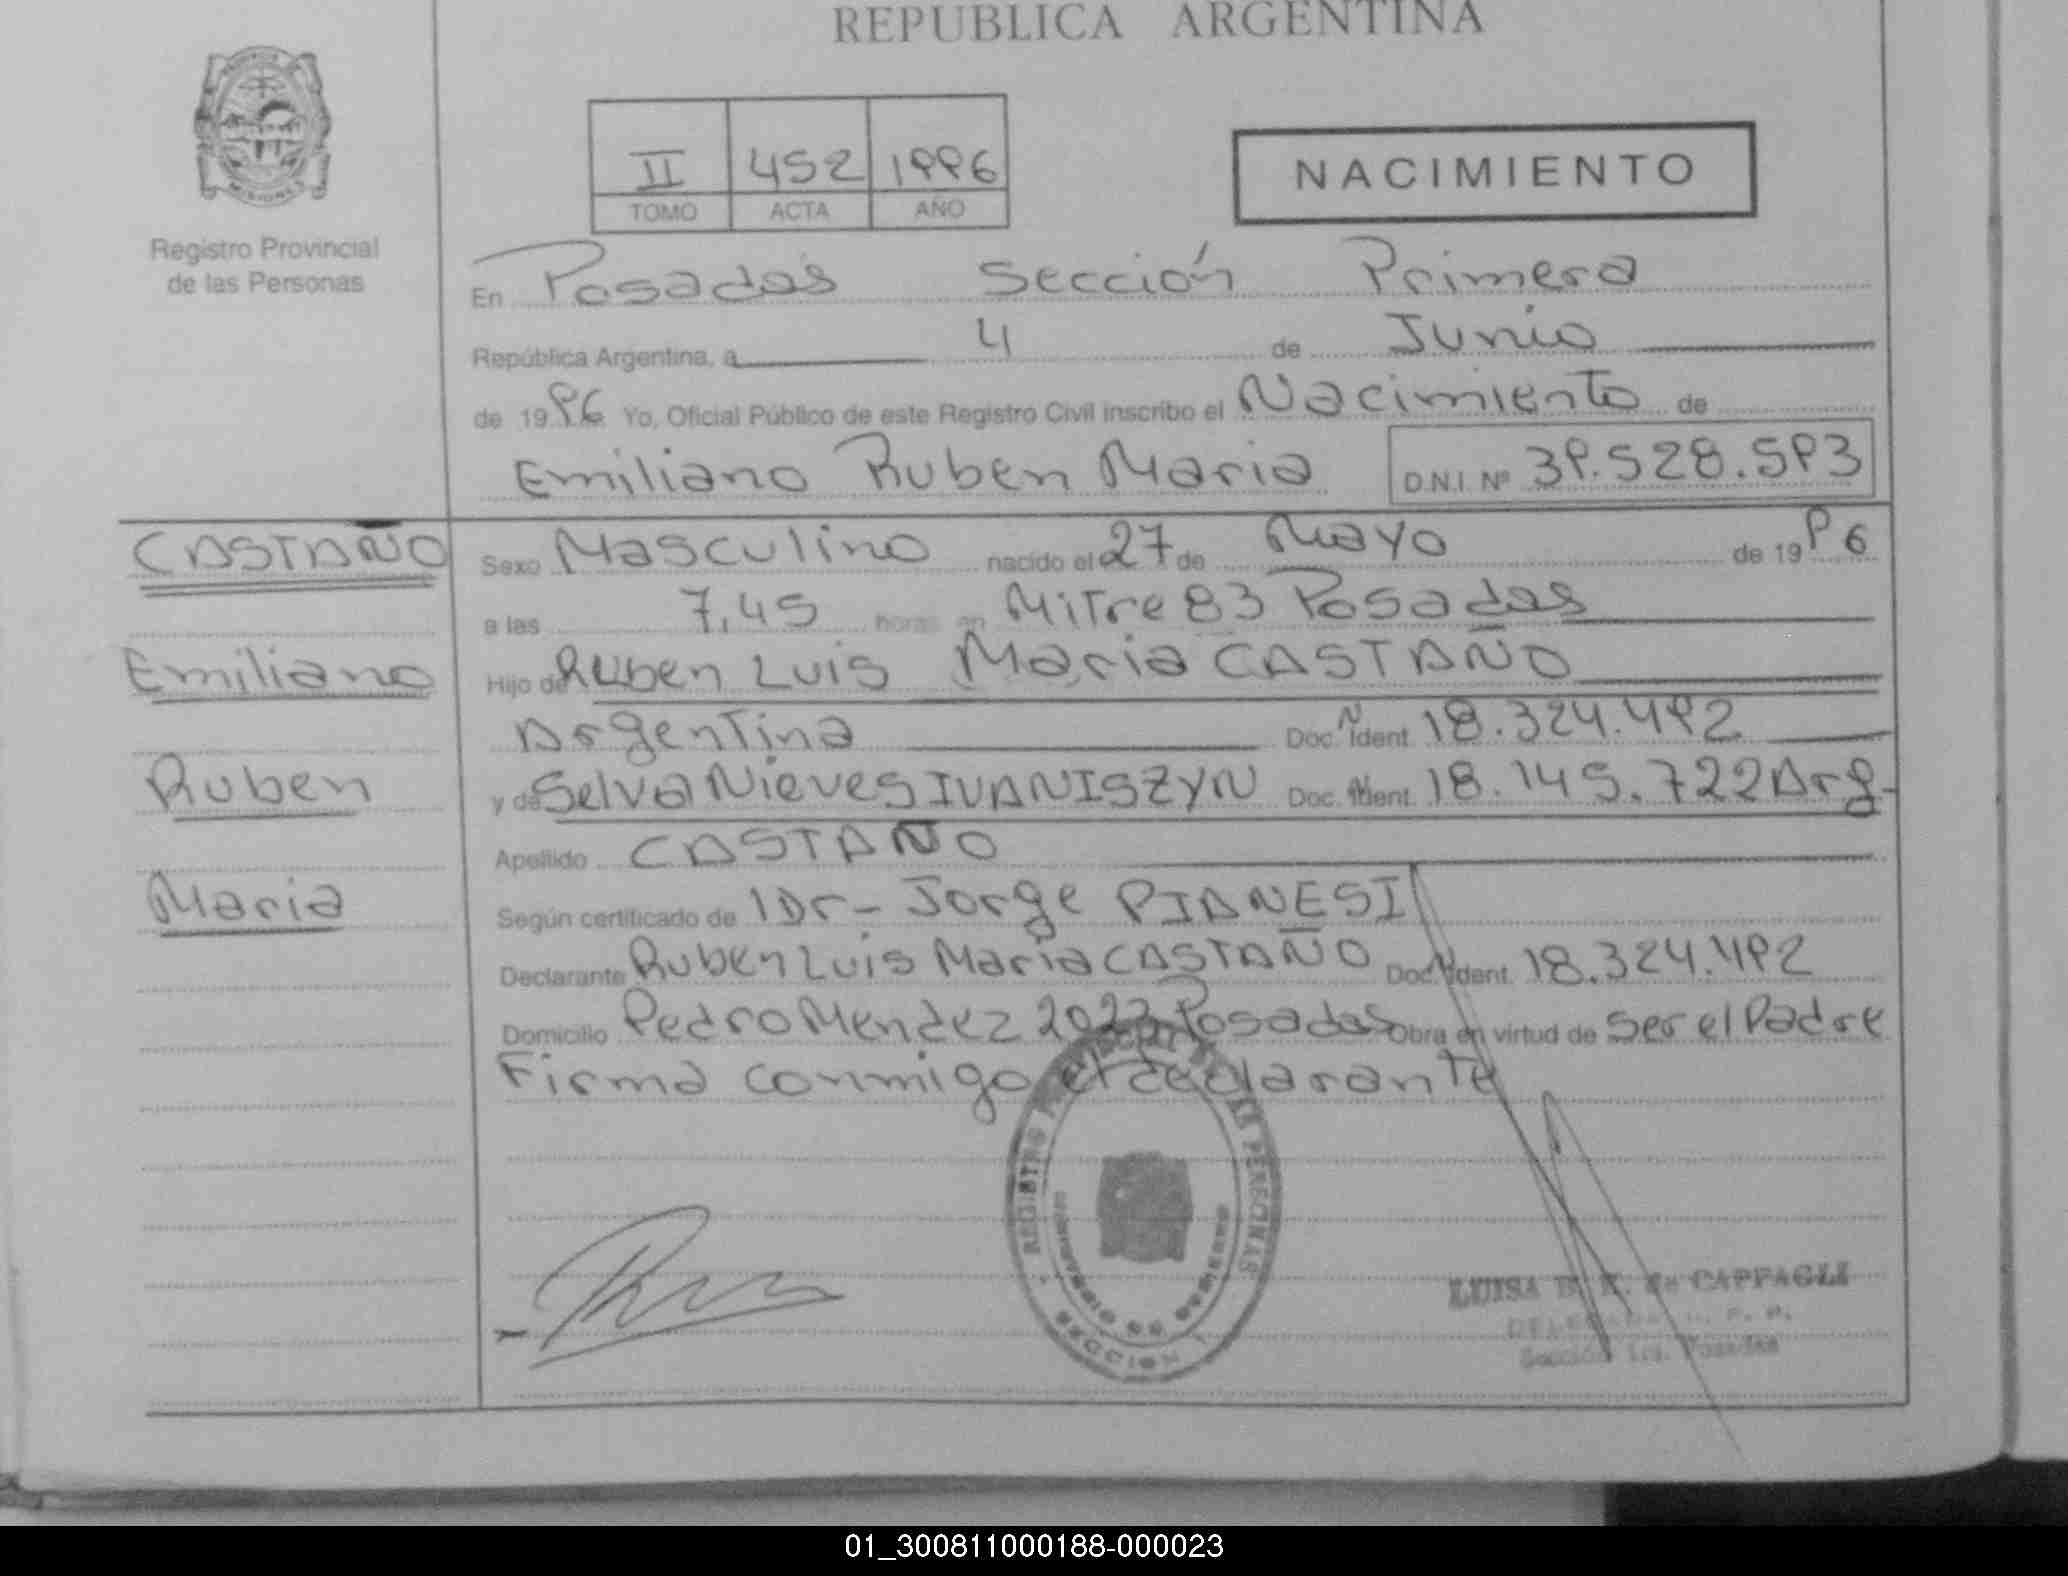 REPUBLICA ARGENTINA
MISIONES
Registro Provincial
de las Personas
II 452 1996
TOMO ACTA AÑO
NACIMIENTO
En Posadas Sección Primera
República Argentina, a 4 de Junio
de 1996 Yo, Oficial Público de este Registro Civil inscribo el Nacimiento de
Emiliano Ruben Maria D.N.I. Nº 39.528.593
CASTAÑO
Emiliano
Ruben
Maria
Sexo Masculino nacido el 27 de Mayo de 1996
a las 7,45 horas en Mitre 83 Posadas
Hijo de Ruben Luis Maria CASTAÑO
Argentina Doc. Ident. 18.324.492
y de Selva Nieves IVANISZYN Doc. Ident. 18.145.722 Arg-
Apellido CASTAÑO
Según certificado de 1 Dr- Jorge PIANESI
Declarante Ruben Luis Maria CASTAÑO Doc. Ident. 18.324.492
Domicilio Pedro Mendez 2023 Posadas Obra en virtud de ser el Padre
Firma conmigo el declarante
REGISTRO PROVINCIAL DE LAS PERSONAS
SECCION 1
LUISA de CAPPAGLI
Sección 1ra. Posadas
01_300811000188-000023